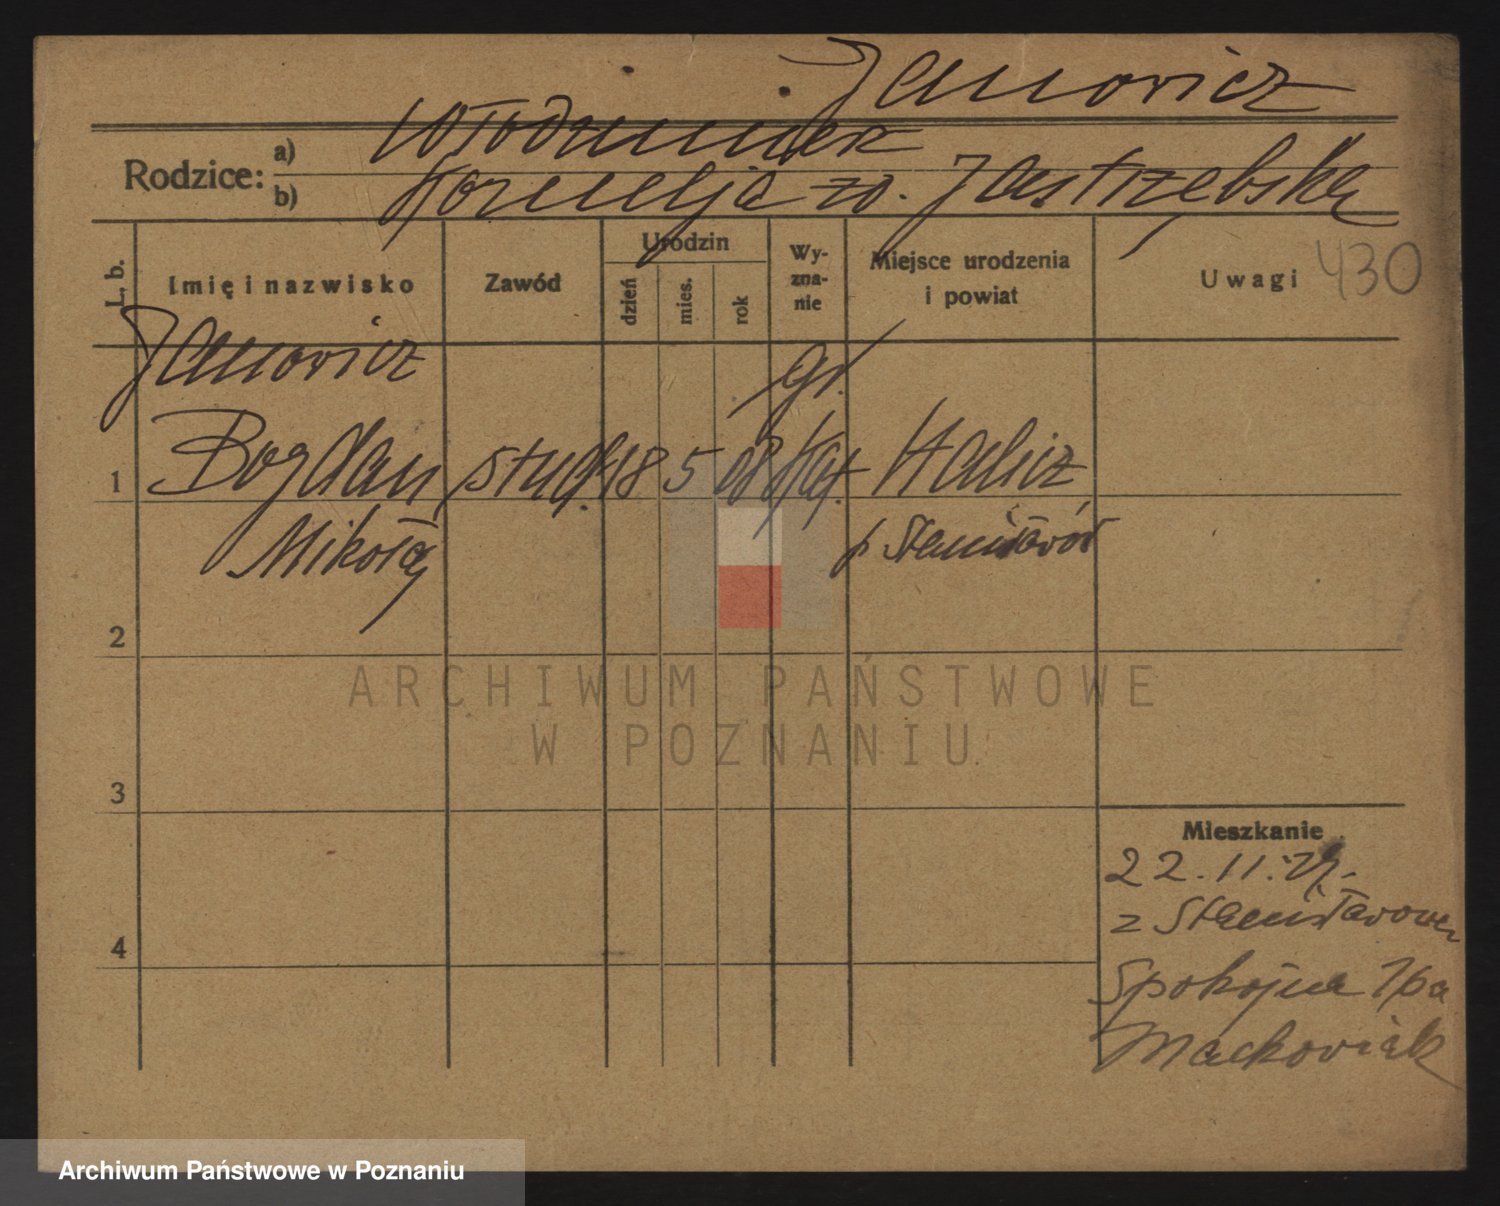 Janowicz
Rodzice: a) Włodzimierz
b) Kornelja zd. Jastrzębska
L. b.
Imię i nazwisko
Zawód
Urodzin
dzień
mies.
rok
Wy-
zna-
nie
Miejsce urodzenia
i powiat
Uwagi 430
Janowicz
gr.
1 Bogdan stud. 18 5 08 kat. Halicz
Mikołaj p Stanisławów
2
ARCHIWUM PAŃSTWOWE
W POZNANIU
3
Mieszkanie
22.11.
4
z Stanisławowa
Spokojna 16a
Maćkowiak
Archiwum Państwowe w Poznaniu